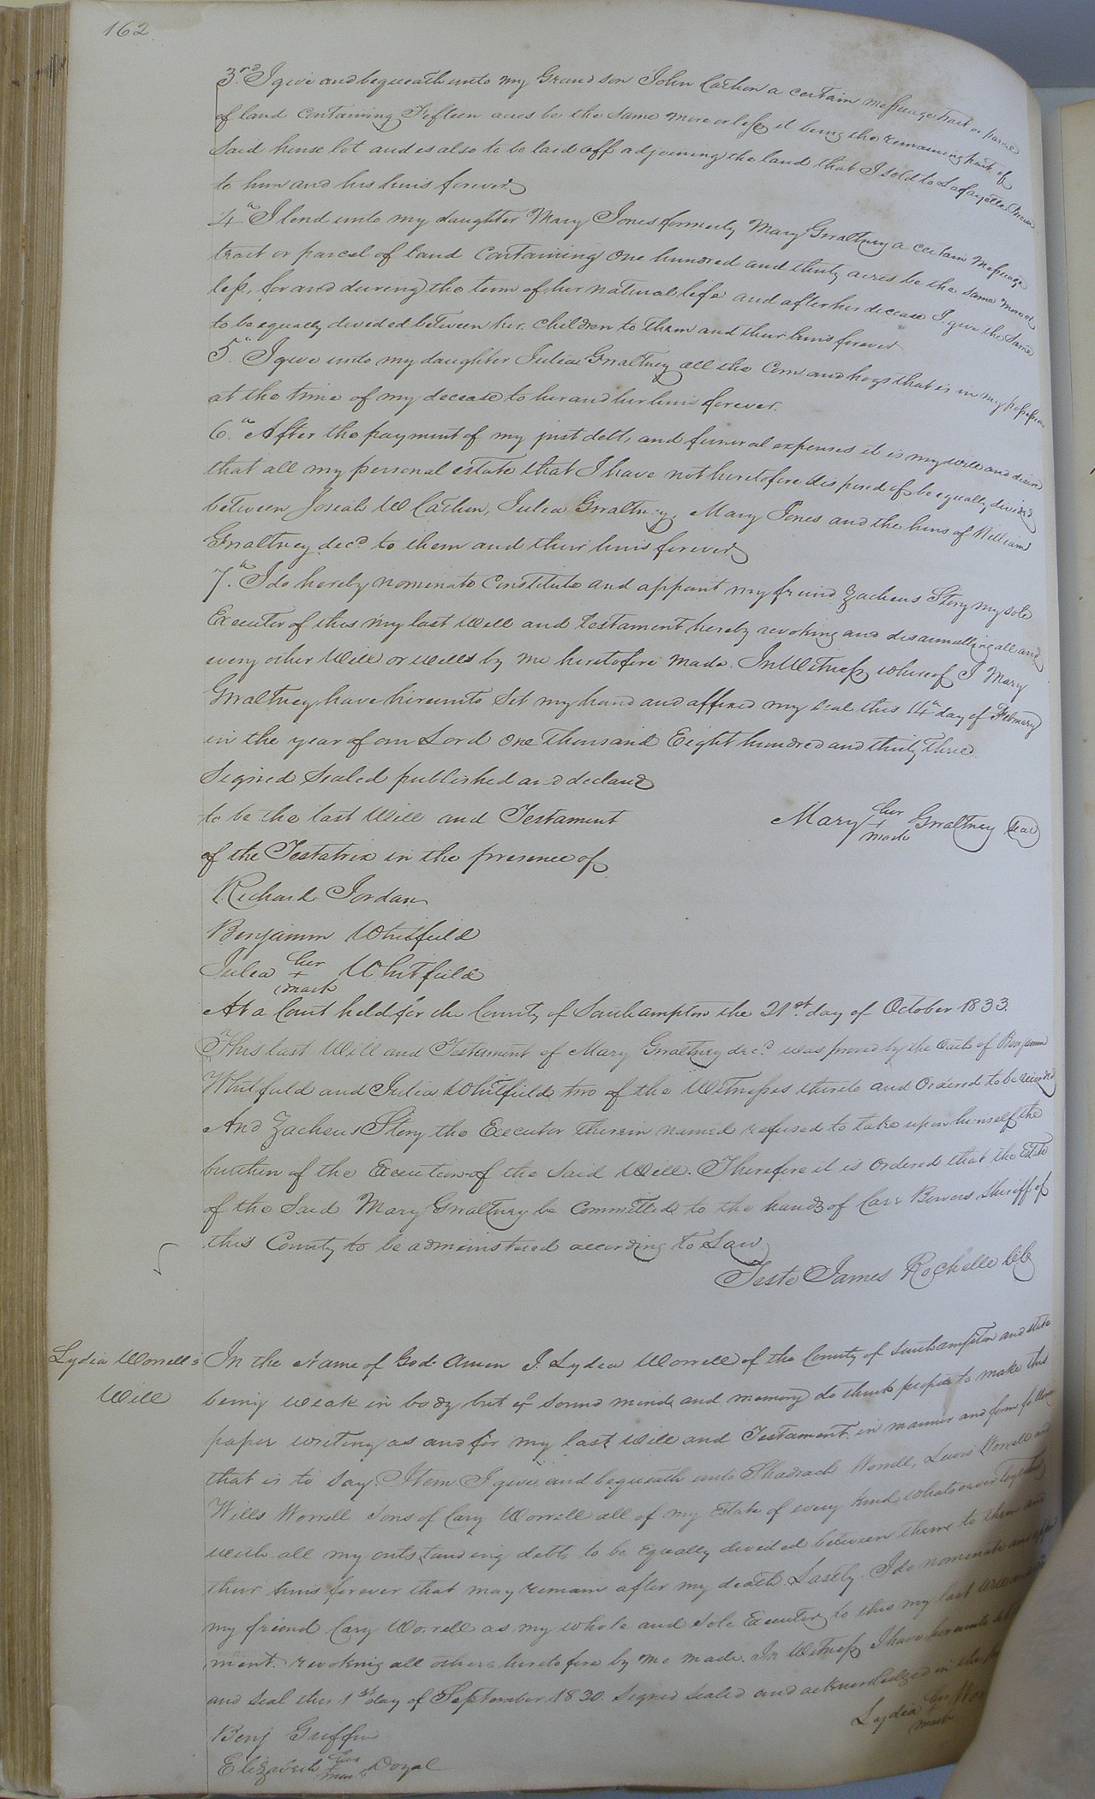 162
3rd I give and bequeath unto my Grand son John Cathon a certain messuage tract or parcel
of land containing Fifteen acres be the same more or less it being the remaining part of
Said house lot and is also to be laid off adjoining the land that I sold to Lafayette
to him and his heirs forever
4th I lend unto my daughter Mary Jones formerly Mary Gwaltney a certain messuage
tract or parcel of land Containing One hundred and thirty acres be the same more or
less, for and during the term of her natural life and after her decease I give the same
to be equally divided between her children to them and their heirs forever
5th I give unto my daughter Julia Gwaltney all the Corn and hogs that is in my possession
at the time of my decease to her and her heirs forever.
6th After the payment of my just debts and funeral expenses it is my will and desire
that all my personal estate that I have not heretofore disposed of be equally divided
between Josiah W Cathon, Julia Gwaltney, Mary Jones and the heirs of William
Gwaltney decd to them and their heirs forever
7th I do hereby nominate Constitute and appoint my friend Zacheus Story my sole
Executor of this my last Will and testament hereby revoking and disannulling all and
every other Will or wills by me heretofore made. In Witness whereof I Mary
Gwaltney have hereunto Set my hand and affixed my seal this 14th day of February
in the year of our Lord One thousand Eight hundred and thirty three
Signed Sealed published and declared
to be the last Will and Testament
of the Testatrix in the presence of
Mary her + mark Gwaltney seal
Richard Jordan
Benjamin Whitfield
Julia her + mark Whitfield
At a Court held for the County of Southampton the 21st day of October 1833
This last Will and Testament of Mary Gwaltney decd was proved by the oath of Benjamin
Whitfield and Julia Whitfield two of the Witnesses thereto and Ordered to be recorded
And Zacheus Story the Executor therein named refused to take upon himself the
burthen of the Execution of the said Will. Therefore it is Ordered that the Estate
of the Said Mary Gwaltney be Committed to the hands of Carr Bowers Sheriff of
this County to be administered according to Law
Teste James Rochelle Clk
Lydia Worrell's
Will
In the Name of God Amen I Lydia Worrell of the County of Southampton and state
being weak in body but of sound mind and memory do think proper to make this
paper writing as and for my last Will and Testament in manner and form following
that is to say. Item I give and bequeath unto Shadrach Worrell, Lewis Worrell and
Wills Worrell Sons of Cary Worrell all of my Estate of every kind whatsoever together
with all my outstanding debts to be Equally divided between them to them and
their heirs forever that may remain after my death Lastly. I do nominate and
my friend Cary Worrell as my whole and sole Executor to this my last Will and
ment revoking all others heretofore by me made. In Witness I have hereunto set
and seal this 1st day of September 1830 signed sealed and acknowledged in the
Lydia her mark
Benj Griffin
Elizabeth her mark Doyal